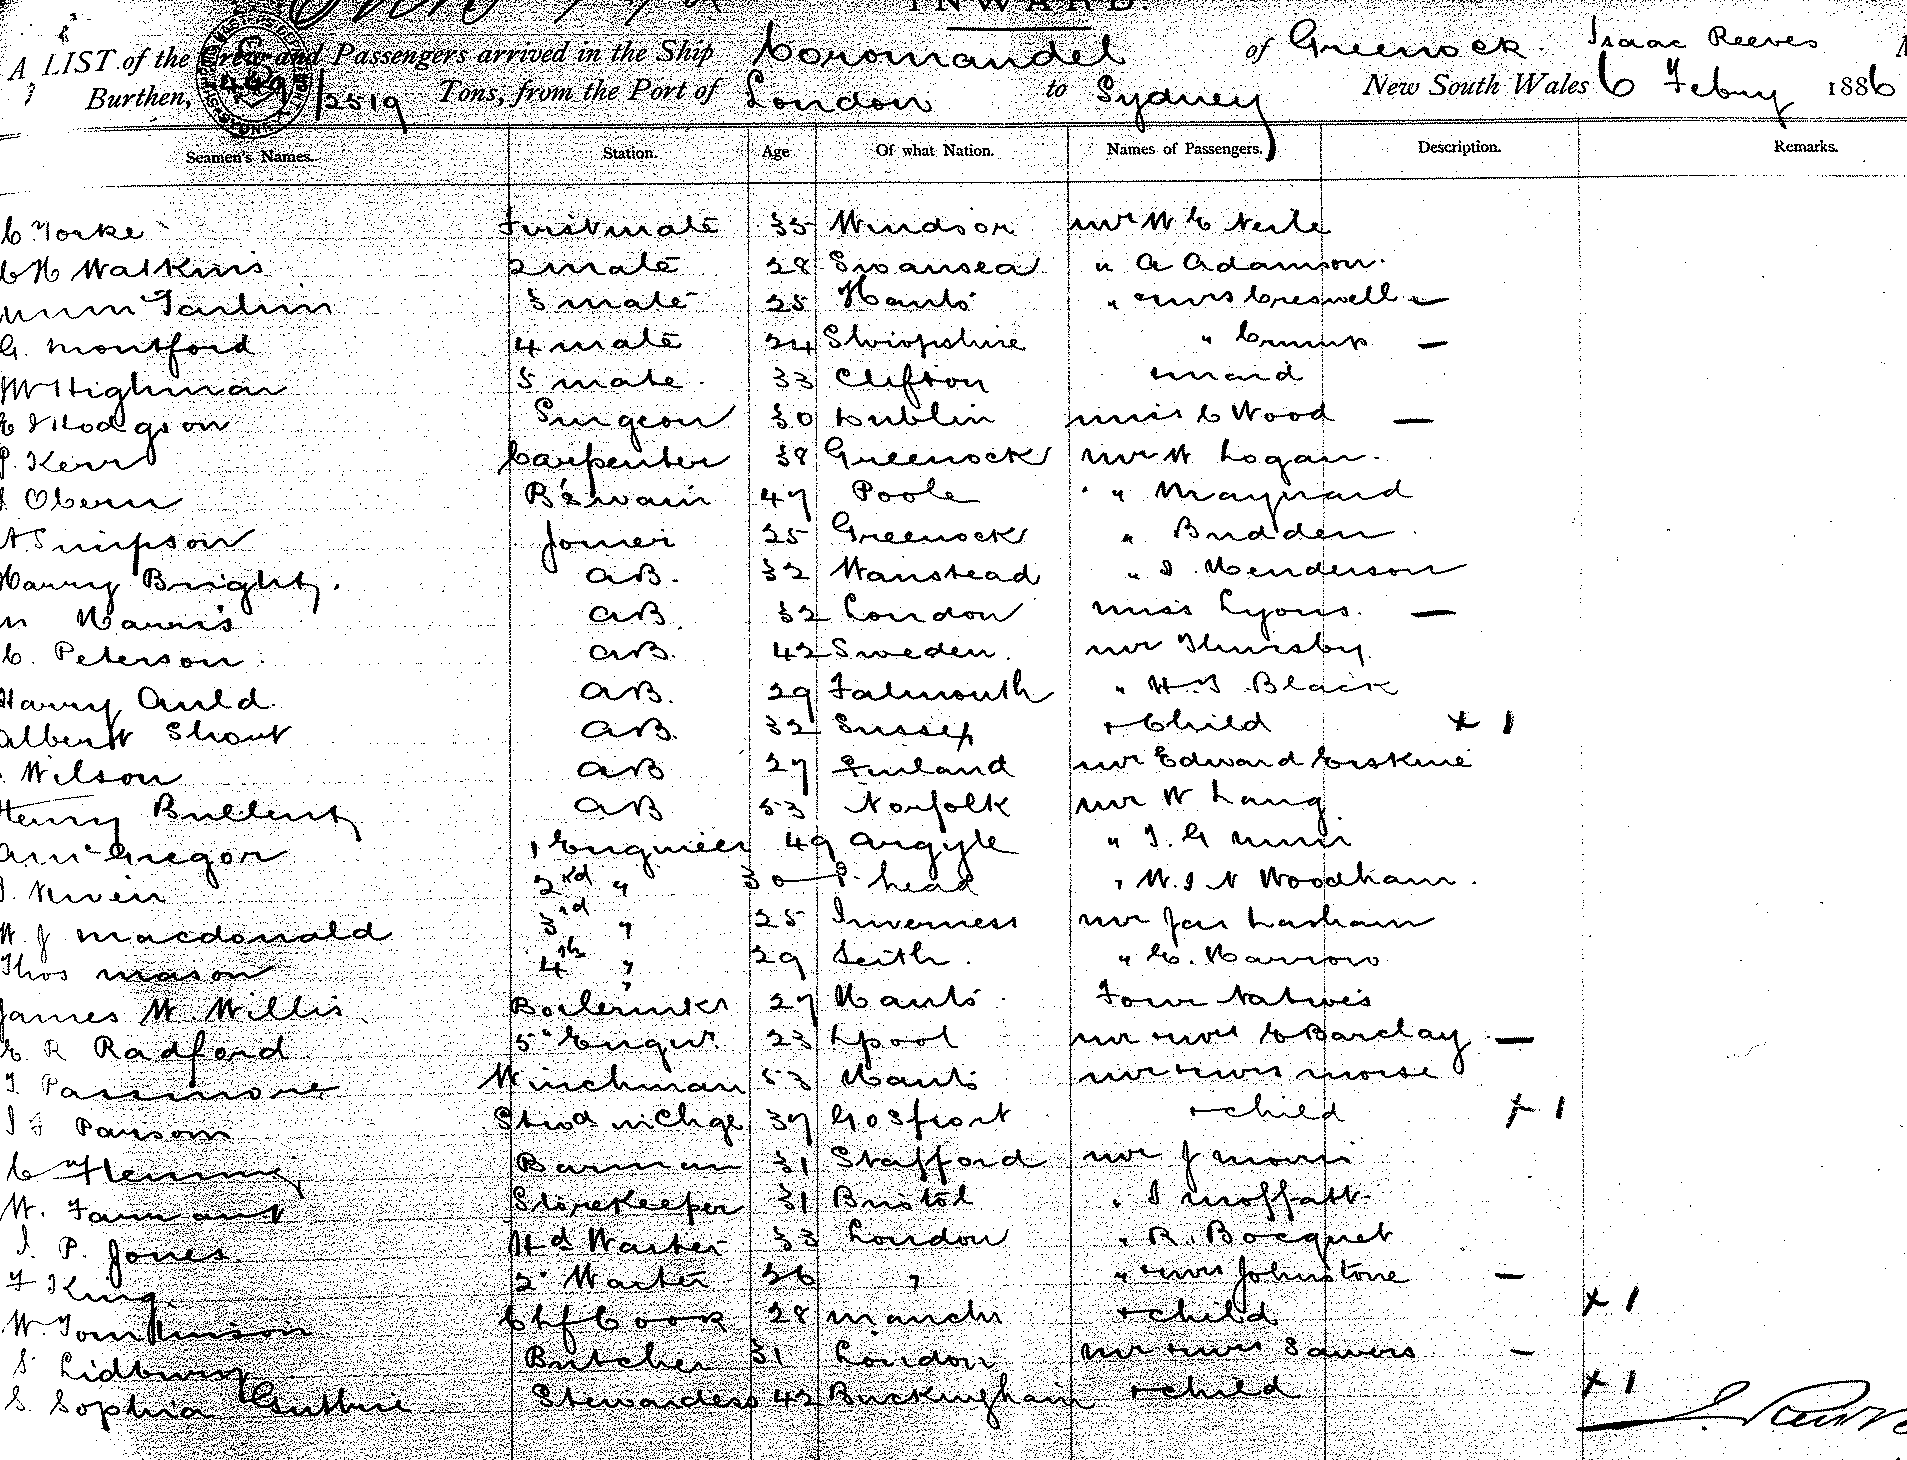 INWARD.
A LIST of the Crew and Passengers arrived in the Ship Coromandel of Greenock. Isaac Reeves
Burthen, 2519 Tons, from the Port of London to Sydney New South Wales 6 Febuy 1886
Seamen's Names. Station. Age Of what Nation. Names of Passengers. Description. Remarks.
C Yorke First mate 35 Windsor Mr W E Neile
C H Watkins 2 mate 28 Swansea " A Adamson.
3 mate 25 Hants " & Mrs Creswell —
G. Montford 4 mate 24 Shropshire " Crump —
Highman 5 mate. 33 Clifton & maid
E J Hodgson Surgeon 30 Dublin Miss C Wood —
P. Kerr Carpenter 38 Greenock Mr W Logan.
Obern Bswain 47 Poole " Maynard
A Simpson Joiner 25 Greenock " Budden
Harry Bright. AB. 32 Wanstead " J Henderson
Harris AB. 32 London Miss Lyons. —
C. Peterson. AB. 42 Sweden. Mr Thursby.
Harry Auld. AB. 29 Falmouth " H. J Black
Albert Shout AB. 32 Sussex & Child + 1
Wilson AB 27 Finland Mr Edward Erskine
Henry Bullent AB 53 Norfolk Mr W Lang
A McGregor 1 Engineer 49 Argyle " J. G Muir
J. Niven 2nd " 30 P. head " W. J N Woodham.
W J Macdonald 3rd " 25 Inverness Mr Jas Lasham
Thos Mason 4th " 29 Leith. " C. Harrow
James W. Willis Boilermkr 27 Hants. Four Natives
E. R Radford 5th Enginr. 23 Lpool Mr & Mrs E Barclay —
T. Passmore Winchman 53 Hants Mr & Mrs Morse
Parsons Stwd in Chge 37 Gosport & child + 1
C Fleming Barman 31 Stafford Mr J Morris
W. Farmant Storekeeper 31 Bristol " J Moffatt
J. P. Jones Hd Waiter 33 London " R. Bocquet
F King. 2 Waiter 26 " " & Mrs Johnstone —
W. Tomkinson Chf Cook 28 Manchr & child + 1
S Lidbury Butcher 31 London Mr & Mrs Sawers —
S. Sophia Guthrie Stewardess 42 Buckingham & child + 1